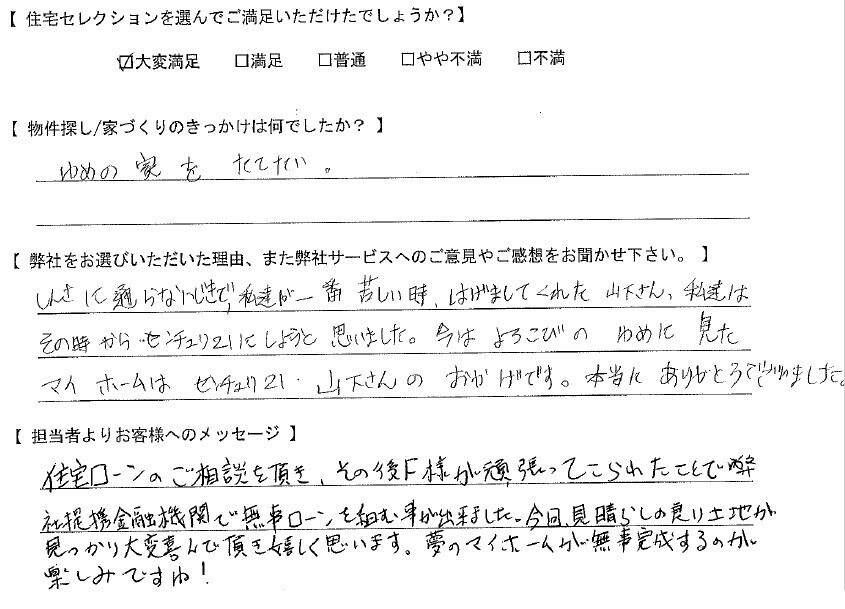 【 住宅セレクションを選んでご満足いただけたでしょうか？】
☑大変満足 □満足 □普通 □やや不満 □不満
【 物件探し/家づくりのきっかけは何でしたか？ 】
ゆめの 家 を たてたい。
【 弊社をお選びいただいた理由、また弊社サービスへのご意見やご感想をお聞かせ下さい。 】
しんさに通らないじきで、私達が一番苦しい時、はげましてくれた 山下さん、私達は
その時から センチュリ21にしようと 思いました。今は よろこびの ゆめに 見た
マイ ホームは センチュリ21・山下さんの おかげです。本当に ありがとうございました。
【 担当者よりお客様へのメッセージ 】
住宅ローンのご相談を頂き、その後F様が頑張ってこられたことで弊
社提携金融機関で無事ローンを組む事が出来ました。今回、見晴らしの良い土地が
見つかり大変喜んで頂き嬉しく思います。夢のマイホームが無事完成するのが
楽しみですね！